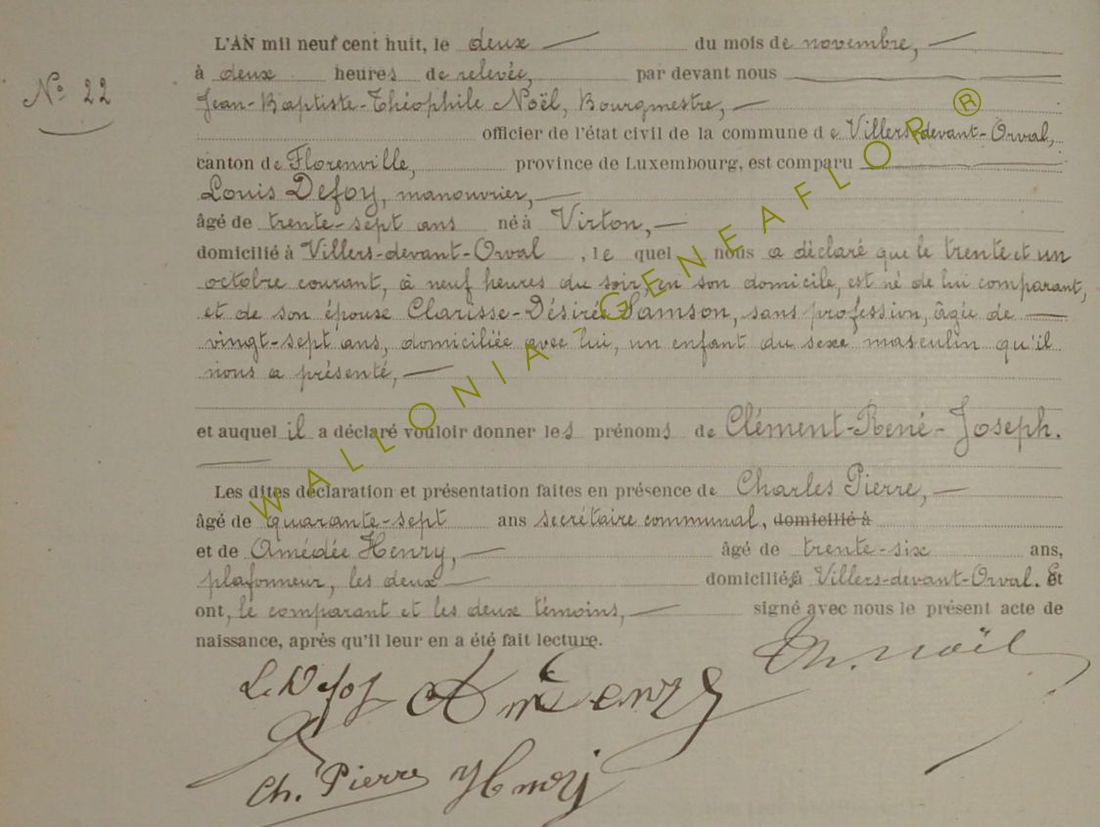 L'AN mil neuf cent huit, le deux — du mois de novembre, —
Nº 22
à deux heures de relevée, par devant nous
Jean-Baptiste-Théophile Noël, Bourgmestre, —
officier de l'état civil de la commune de Villers-devant-Orval,
canton de Florenville, province de Luxembourg, est comparu
Louis Defoy, manouvrier, —
âgé de trente-sept ans né à Virton, —
domicilié à Villers-devant-Orval, le quel nous a déclaré que le trente et un
octobre courant, à neuf heures du soir, en son domicile, est né de lui comparant,
et de son épouse Clarisse-Désirée Samson, sans profession, âgée de —
vingt-sept ans, domiciliée avec lui, un enfant du sexe masculin qu'il
nous a présenté, —
et auquel il a déclaré vouloir donner les prénoms de Clément-René-Joseph.
Les dites déclaration et présentation faites en présence de Charles Pierre, —
âgé de quarante-sept ans secrétaire communal, domicilié à
et de Amédée Henry, — âgé de trente-six ans,
plafonneur, les deux — domiciliés à Villers-devant-Orval. Et
ont, le comparant et les deux témoins, — signé avec nous le présent acte de
naissance, après qu'il leur en a été fait lecture.
Th. Noël
L. Defoy
Ch. Pierre
WALLONIA-GENEAFLOR ®